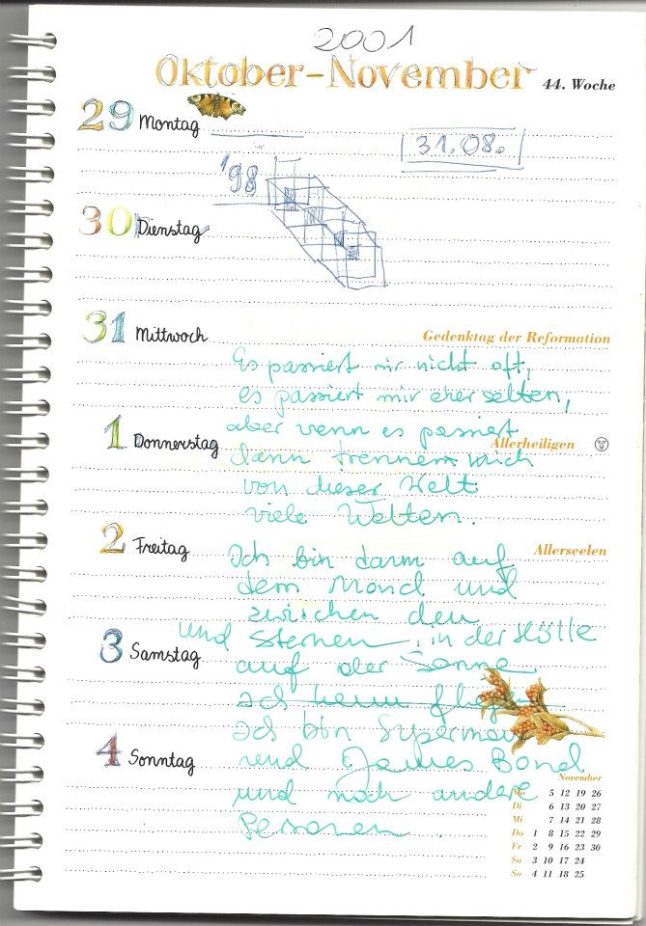 2001
Oktober-November 44. Woche
29 Montag
31.08.
'98
30 Dienstag
31 Mittwoch Gedenktag der Reformation
Es passiert mir nicht oft,
es passiert mir eher selten,
aber wenn es passiert
1 Donnerstag Allerheiligen
dann trennen mich
von dieser Welt
viele Welten.
2 Freitag Allerseelen
Ich bin dann auf
dem Mond und
zwischen den
und Sternen, in der Hölle
3 Samstag
auf der Sonne
Ich kann fliegen
Ich bin Superman
4 Sonntag
und James Bond
und noch andere
Personen.
November
Mo 5 12 19 26
Di 6 13 20 27
Mi 7 14 21 28
Do 1 8 15 22 29
Fr 2 9 16 23 30
Sa 3 10 17 24
So 4 11 18 25